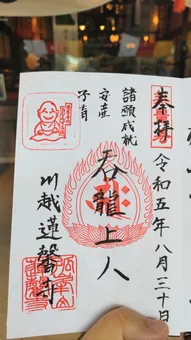 奉拝
令和五年八月三十日
諸願成就
安産
子育
呑龍上人
川越蓮馨寺